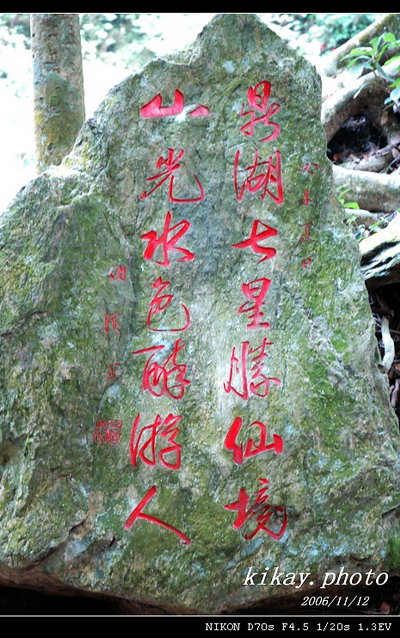 鼎湖七星勝仙境
山光水色醉游人
kikay.photo
2006/11/12
NIKON D70s F4.5 1/20s 1.3EV